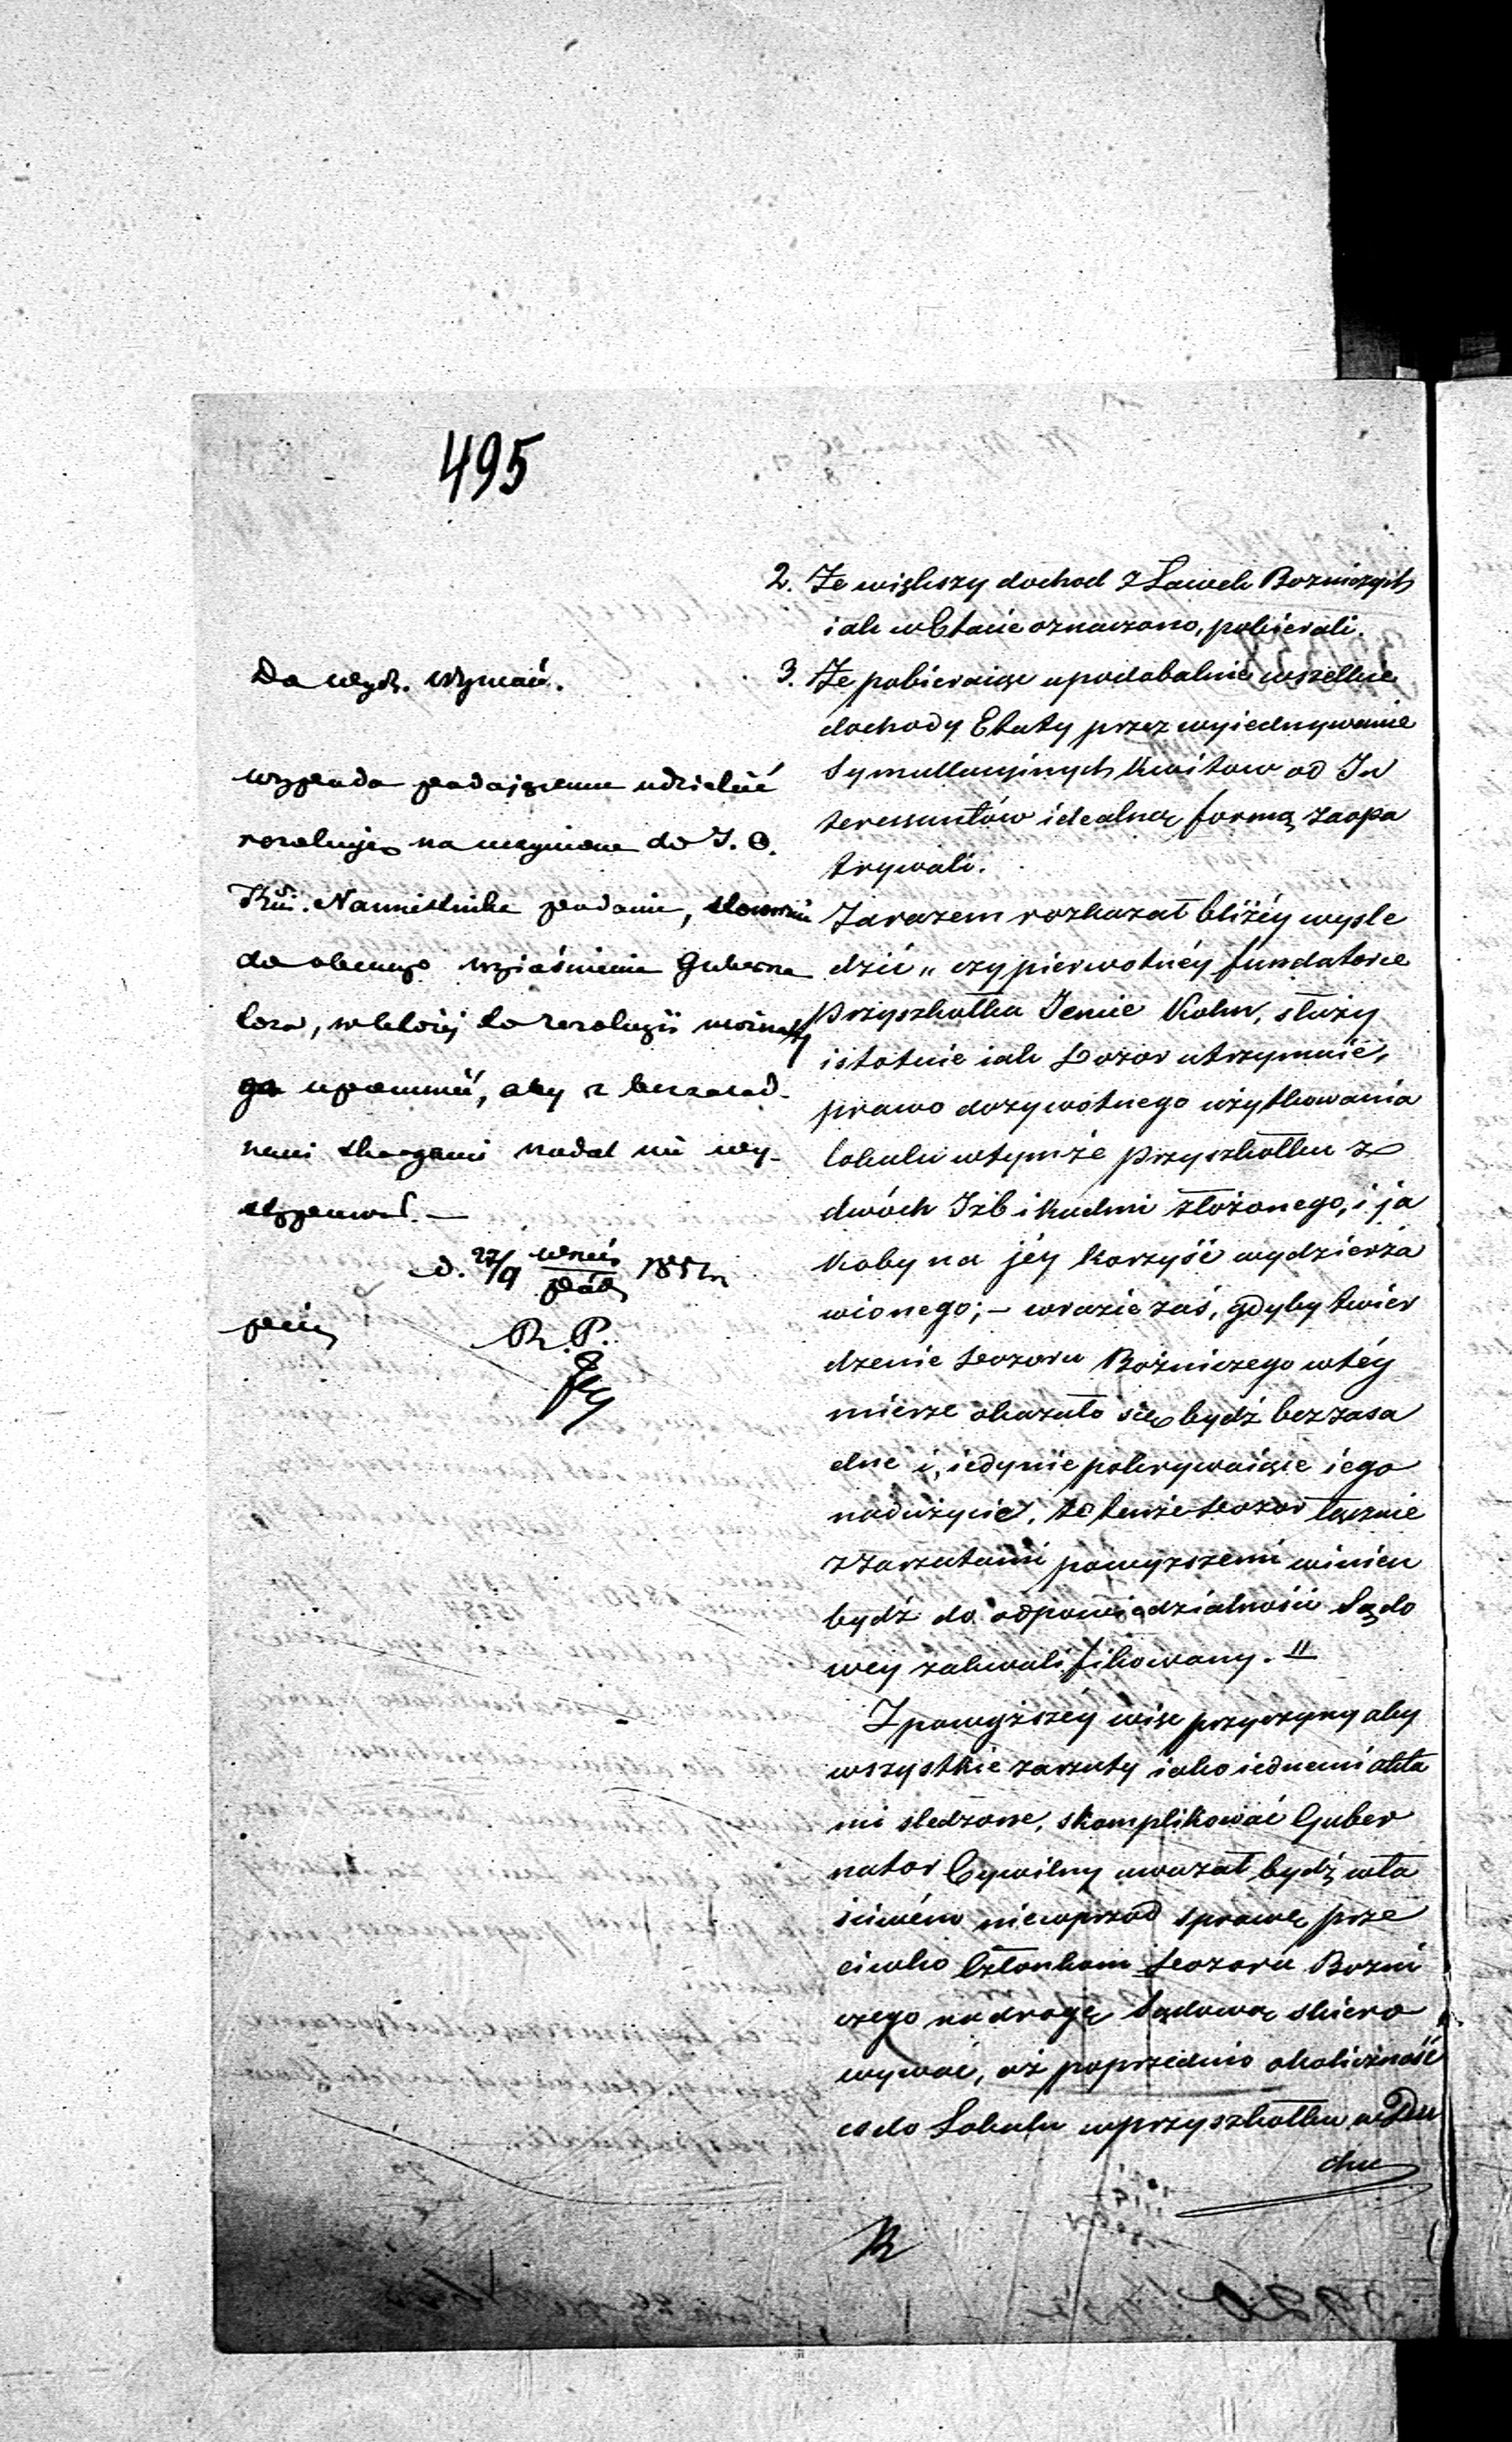 495
Do wydz. wyznań.
wypada podającemu udzielić
rezolucję na uczynione do J. O.
Kcia. Namiestnika podanie, stosownie
do obecnego wyiaśnienia Guberna
tora, w której to rezolucji możnaby
go upomnieć, aby z bezzasad-
nemi skargami nadal nie wy-
stępował. —
d. 27/9 wrześ/paźd 185
R. P.
2. Że większy dochod z Ławek Bozniczych
iak w Etacie oznaczono, pobierali.
3. Że pobieraiąc upodobalnie wszelkie
dochody Etaty przez wyiednywanie
Symullacyinych kwitow od In
teressantów idealną formą zaopa
trywali.
Zarazem rozkazał bliżéy wyśle
dzić „ czy pierwotnéy fundatorce
Przyszkołka Jenie Kohn, służy
istotnie iak Dozor utrzymuie,
prawo dozywotnego użytkowania
lokalu wtymże Przyszkołku z
dwóch Izb i kuchni złożonego, i ja
koby na jéy korzyść wydzierża
wionego; — wrazie zaś, gdyby twier
dzenie Dozoru Bożniczego wtéy
mierze okazało się bydź bezzasa
dne i, iedynie pokrywaiące iego
nadużycie, to tenże Dozor łącznie
z zarzutami powyższemi winien
bydź do odpowiedzialności Sądo
wey zakwalifikowany. "
Z powyższéy więc przyczyny aby
wszystkie zarzuty iako iednemi akta
mi śledzone, skomplikować Guber
nator Cywilny uważał bydź wła
ściwém niewprzod sprawę prze
ciwko Członkom Dozoru Bozni
czego na drogę Sądową skiero
wywać, aż poprzednio okoliczność
co do Lokalu w przyszkołku w Du
chu
R